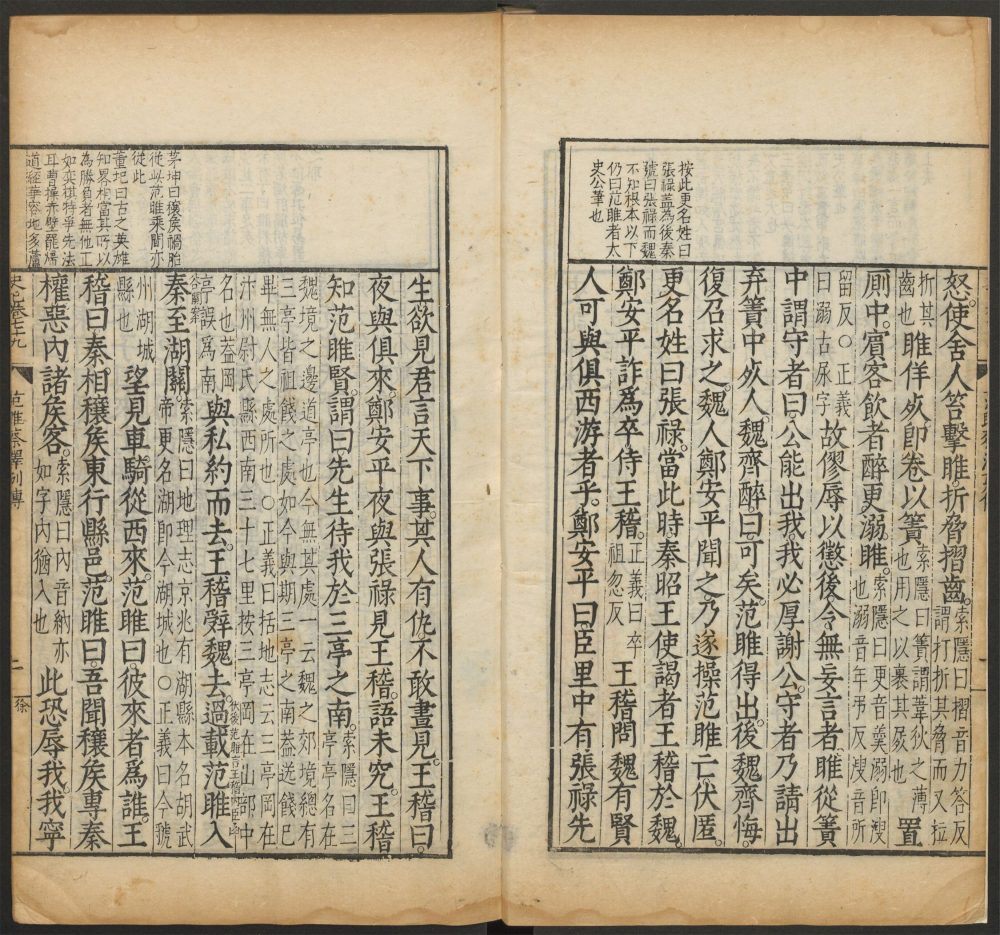 按此更名姓曰
張祿蓋為後秦
號曰張祿而魏
不知根本以下
仍曰范雎者太
史公筆也
怒使舍人笞擊雎折脅摺齒索隱曰摺音力答反
謂打折其脅而又拉
折其
齒也雎佯死卽卷以簀索隱曰簀謂葦荻之薄
也用之以裹其屍也置
廁中賓客飮者醉更溺雎索隱曰更音羹溺卽溲
也溺音年弔反溲音所
留反○正義
曰溺古尿字故僇辱以懲後令無妄言者雎從簀
中謂守者曰公能出我我必厚謝公守者乃請出
弃簀中死人魏齊醉曰可矣范雎得出後魏齊悔
復召求之魏人鄭安平聞之乃遂操范雎亡伏匿
更名姓曰張祿當此時秦昭王使謁者王稽於魏
鄭安平詐爲卒侍王稽正義曰卒
祖忽反王稽問魏有賢
人可與俱西游者乎鄭安平曰臣里中有張祿先
茅坤曰穰矦禍胎
從此范雎乘間亦
從此
董玘曰古之英雄
知畧相當其所以
為勝負者無他工
如奕棋特爭先法
耳曹操赤壁罷歸
道經華容地多蘆
生欲見君言天下事其人有仇不敢晝見王稽曰
夜與俱來鄭安平夜與張祿見王稽語未究王稽
知范雎賢謂曰先生待我於三亭之南索隱曰三
亭亭名在
魏境之邊道亭也今無其處一云魏之郊境總有
三亭皆祖餞之處如今與期三亭之南蓋送餞已
畢無人之處所也○正義曰括地志云三亭岡在
汴州尉氏縣西南三十七里按三亭岡在山部中
名也蓋岡
亭誤爲南與私約而去王稽辭魏去過載范雎入
秦至湖關索隱曰地理志京兆有湖縣本名胡武
帝更名湖卽今湖城也○正義曰今虢
州湖城
縣也望見車騎從西來范雎曰彼來者爲誰王
稽曰秦相穰矦東行縣邑范雎曰吾聞穰矦專秦
權惡內諸矦客索隱曰內音納亦
如字內猶入也此恐辱我我寧
史記卷七十九
范雎蔡澤列傳
二
徐